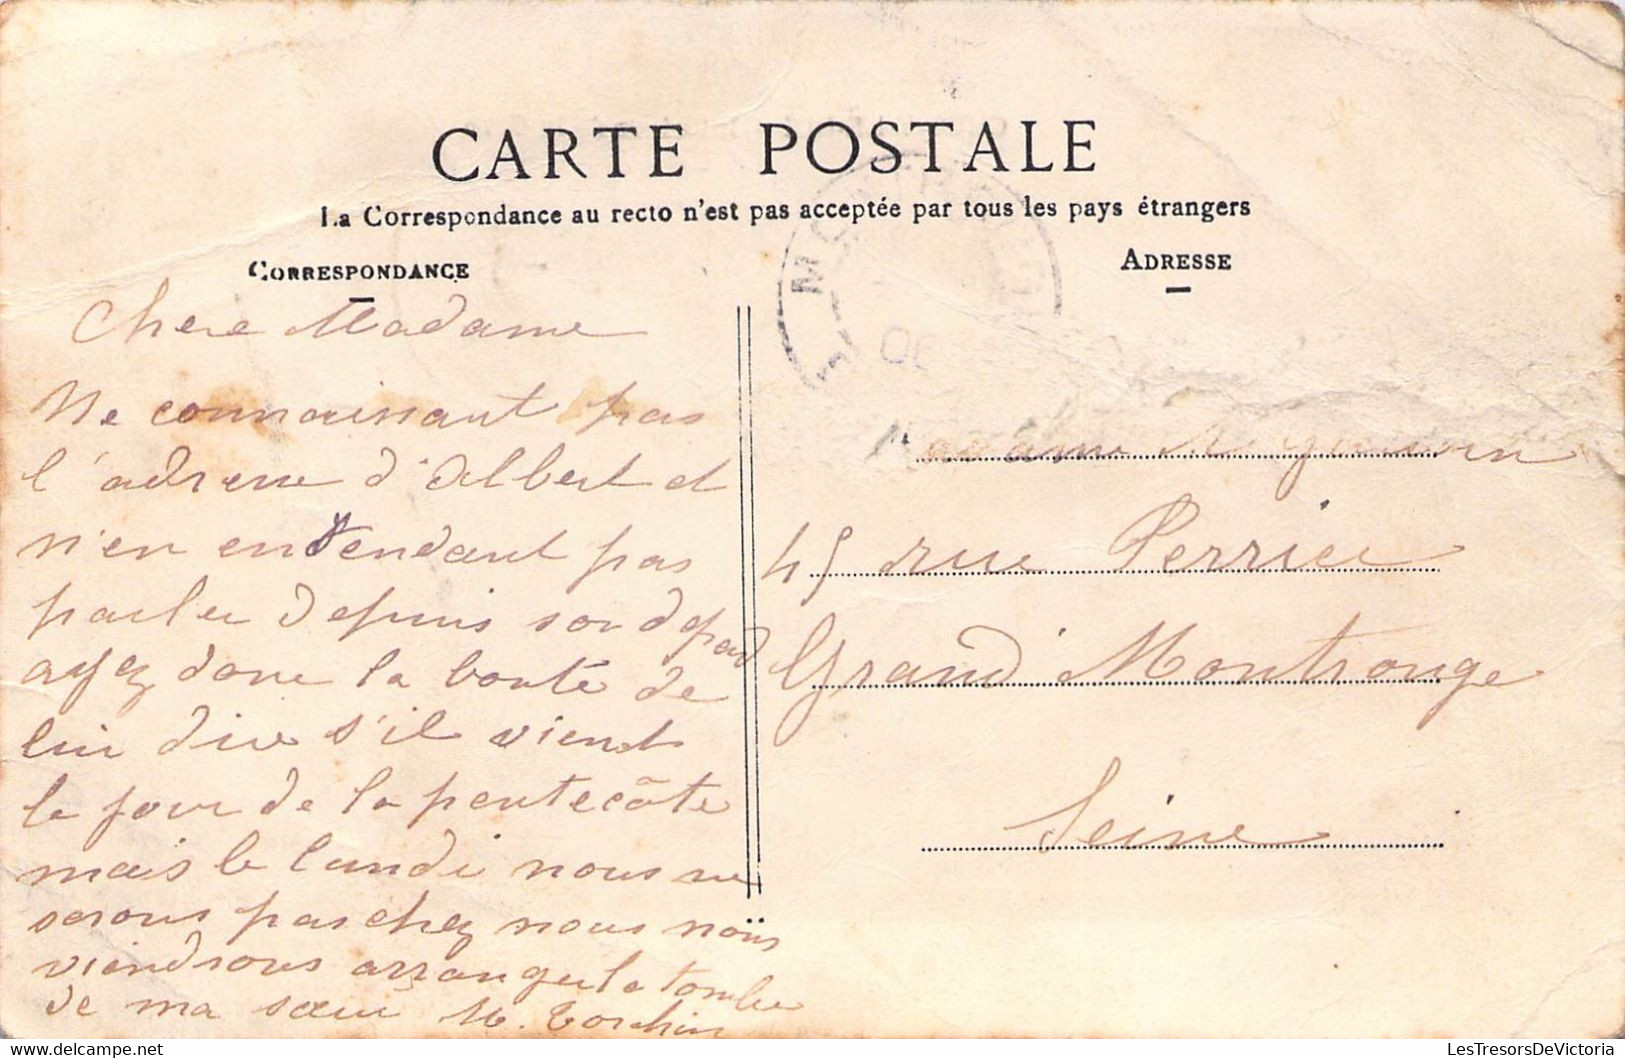 CARTE POSTALE
La Correspondance au recto n'est pas acceptée par tous les pays étrangers
CORRESPONDANCE
Chere Madame
Ne connaissant pas
l'adresse d'Albert et
n'en entendant pas
parler depuis son depart
ayez donc la bonté de
lui dire s'il vient
le jour de la pentecôte
mais le lundi nous ne
serons pas chez nous nous
viendrons arranger la tombe
de ma sœur M.
ADRESSE
Madame
45 rue Perrier
Grand Montrouge
Seine
LesTresorsDeVictoria